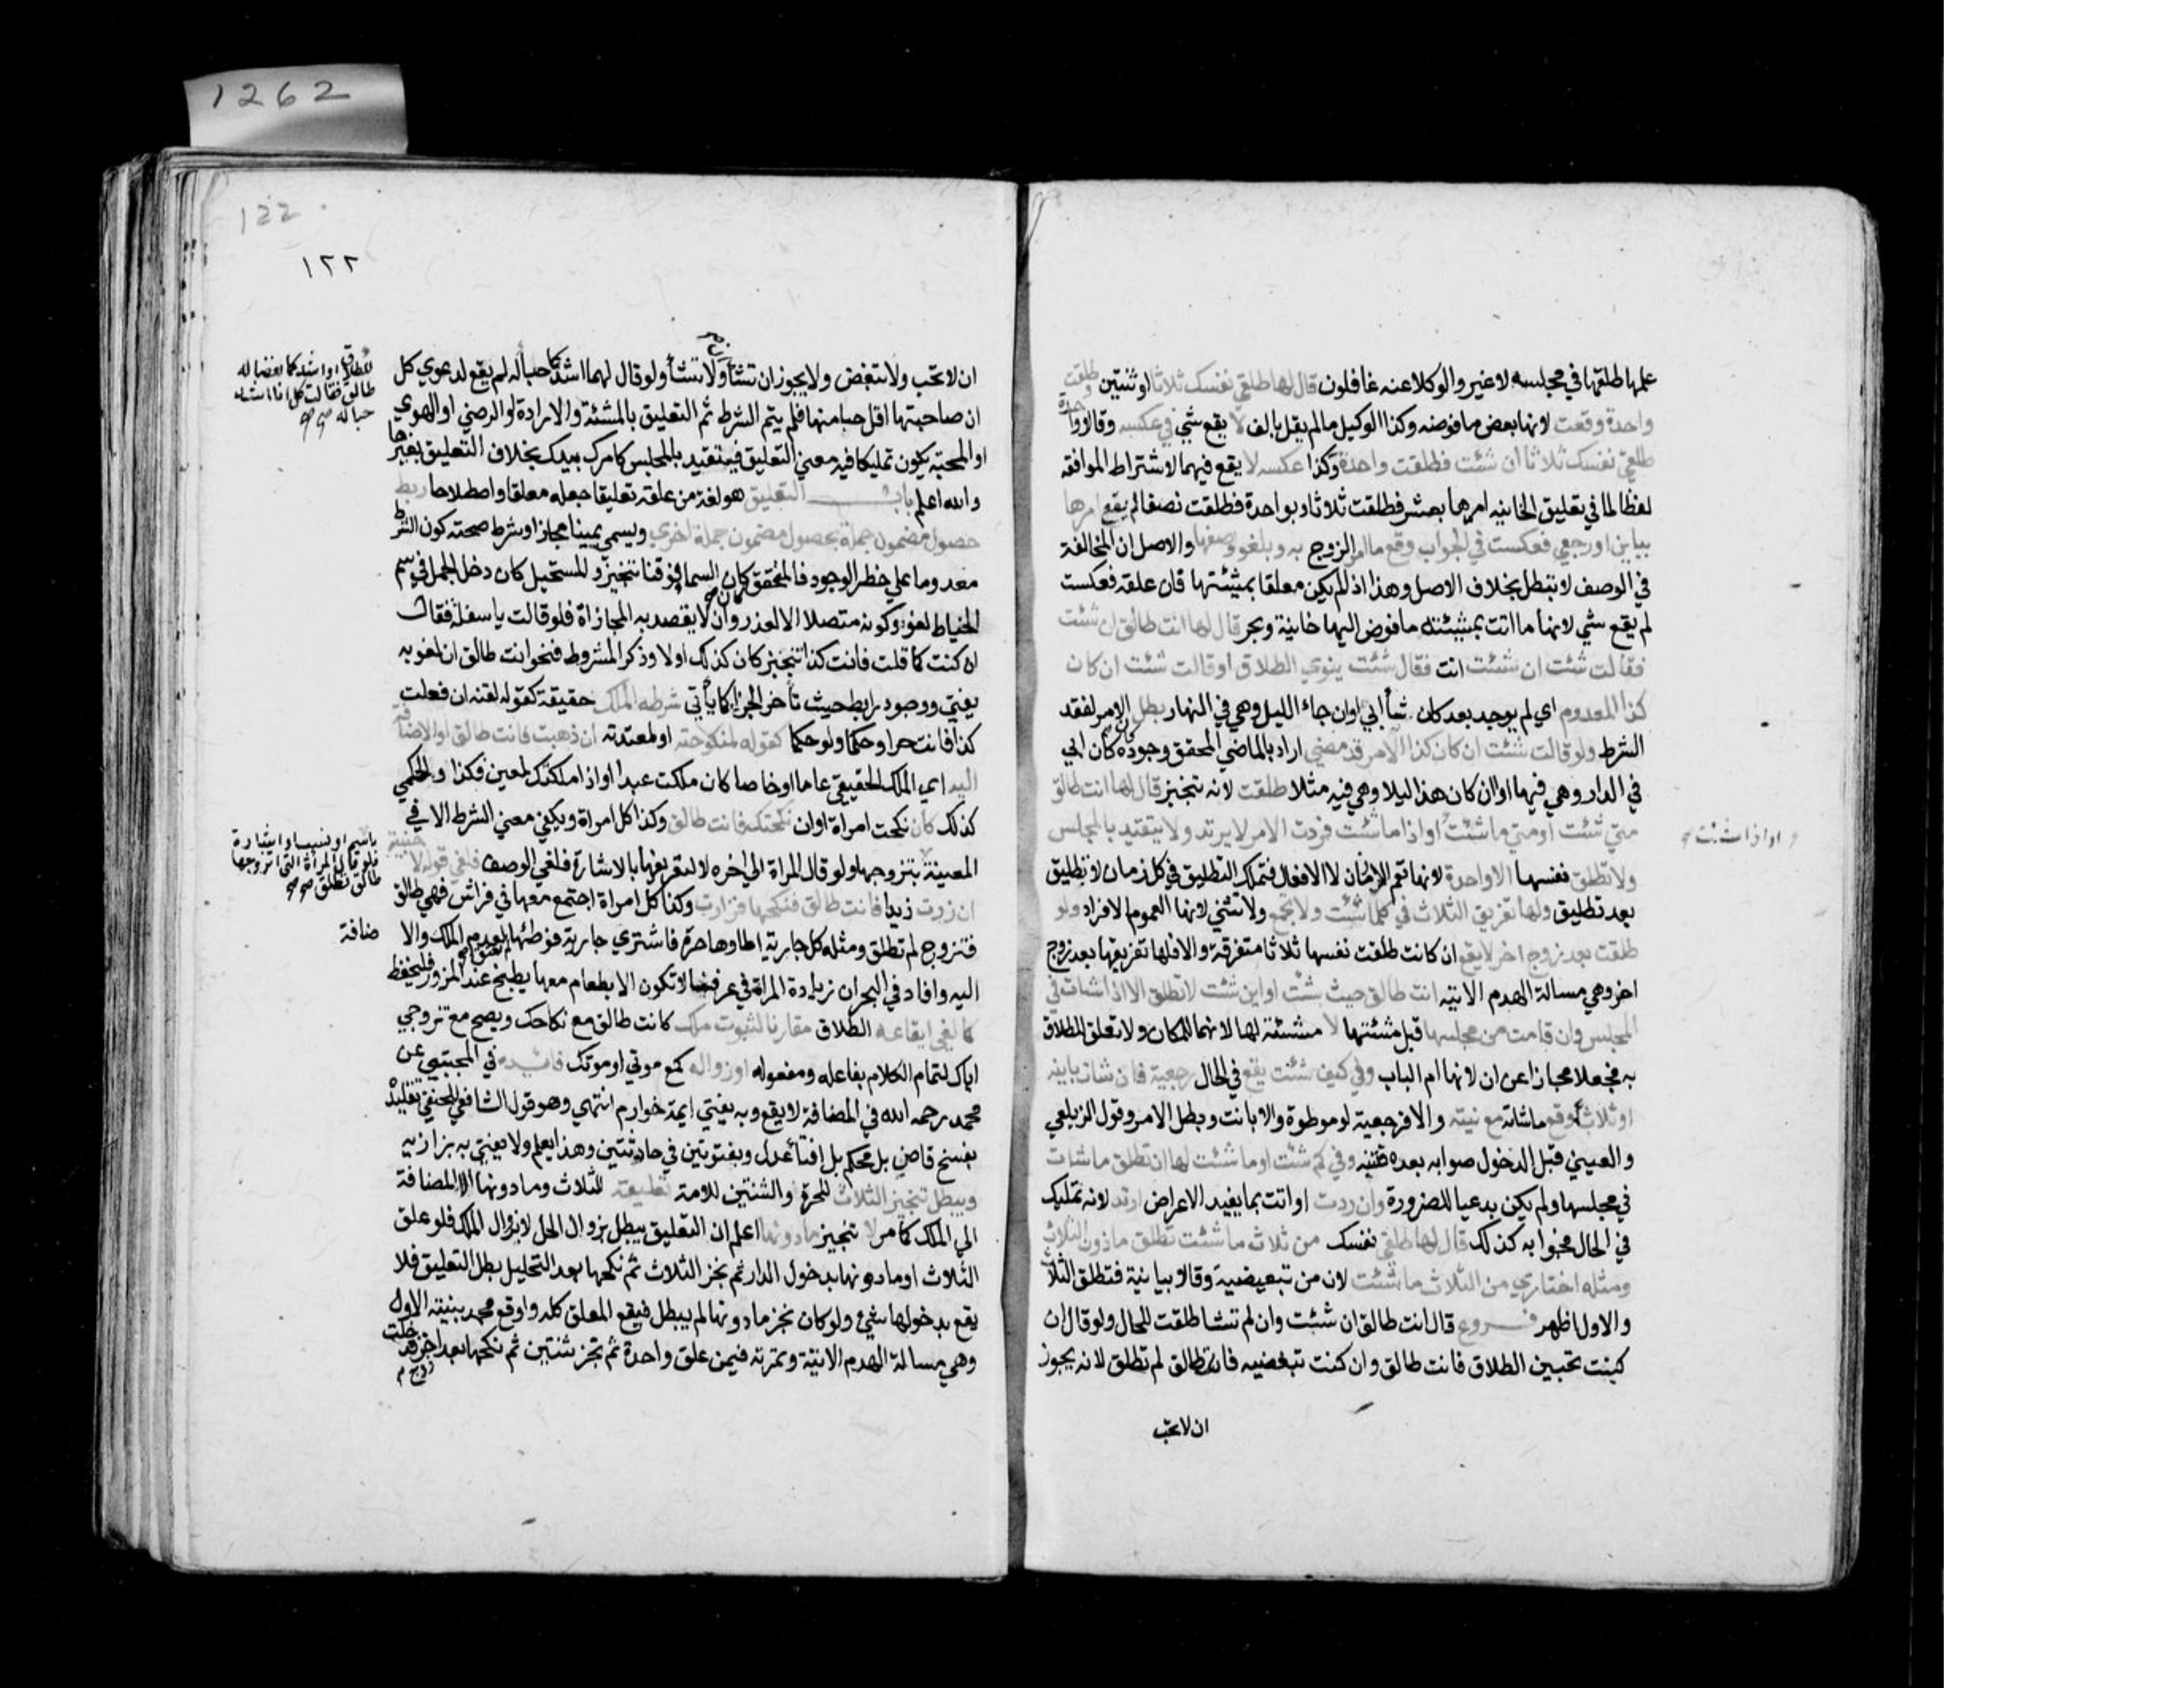 1262
علمها طلقها في مجلسه لا غير والوكلا عنه غافلون قال لها طلقي نفسك ثلاثا او ثنتين وطلقت
واحدة وقعت لانها بعض ما فوضه وكذا الوكيل ما لم يقل بالف لا يقع شي في عكسه وقالا واحدة
طلقي نفسك ثلاثا ان شئت فطلقت واحدة وكذا عكسه لا يقع فيهما لاشتراط الموافقة
لفظا لما في تعليق الخانيه امرها بعشر فطلقت ثلاثا او بواحدة فطلقت نصفا لم يقع امرها
بباين او رجعي فعكست في الجواب وقع ما امر الزوج به ويلغو وصفها والاصل ان المخالفة
في الوصف لا تبطل بخلاف الاصل وهذا اذ لم يكن معلقا بمشيئتها فان علقه فعكست
لم يقع شي لانها ما اتت بمشيئته ما فوض اليها خانية وبحر قال لها انت طالق ان شئت
فقالت شئت ان شئت انت فقال شئت ينوي الطلاق او قالت شئت ان كان
كذا المعدوم اي لم يوجد بعد كان شأ ابي او ان جاء الليل وهي في النهار بطل الامر لفقد
الشرط ولو قالت شئت ان كان كذا الامر قد مضي اراد بالماضي المحقق وجوده كان ابي
في الدار وهي فيها او ان كان هذا ليلا وهي فيه مثلا طلقت لانه تنجيز قال لها انت طالق
متي شئت او متي ما شئت او اذا ما شئت فردت الامر لا يرتد ولا يتقيد بالمجلس
واو اذا شئت
ولا تطلق نفسها الا واحدة لانها تعم الازمان لا الافعال فتملك التطليق في كل زمان لا تطليق
بعد تطليق ولها تفريق الثلاث في كلما شئت ولا تجمع ولا تثني لانها العموم الافراد ولو
طلقت بعد زوج اخر لا يقع ان كانت طلقت نفسها ثلاثا متفرقة والا فلها تفريقها بعد زوج
اخر وهي مسالة الهدم الاتيه انت طالق حيث شئت او اين شئت لا تطلق الا اذا شات في
المجلس وان قامت من مجلسها قبل مشئتها لا مشئة لها لانهما للمكان ولا تعلق للطلاق
به فجعلا مجازا عن ان لانها ام الباب وفي كيف شئت يقع في الحال رجعية فان شات باينه
او ثلاثا وقع ما شاته مع نيته والا فرجعية لو موطوة والا بانت وبطل الامر وقول الزيلعي
والعيني قبل الدخول صوابه بعده فتنبه وفي كم شئت او ما شئت لها ان تطلق ما شات
في مجلسها ولم يكن بدعيا للضرورة وان ردت او اتت بما يفيد الاعراض ارتد لانه تمليك
في الحال فجوابه كذلك قال لها طلقي نفسك من ثلاث ما شئت تطلق ما دون الثلاث
ومثله اختاري من الثلاث ما شئت لان من تبعيضية وقالا بيانية فتطلق الثلاث
والاول اظهر فــروع قال انت طالق ان شئت وان لم تشا طلقت للحال ولو قال ان
كنت تحبين الطلاق فانت طالق وان كنت تبغضيه فانت طالق لم تطلق لانه يجوز
ان لا تحب
122
١٢٢
ان لا تحب ولا تبغض ولا يجوز ان تشأ ولا تشأ ولو قال لهما اشدكما حبا له لم يقع لدعوي كل
ان صاحبتها اقل حبا منها فلم يتم الشرط ثم التعليق بالمشئة والارادة او الرضي او الهوي
او المحبة يكون تمليكا فيه معني التعليق فيتقيد بالمجلس كامرك بيدك بخلاف التعليق بغيرها
والله اعلم باب التعليق هو لغة من علقه تعليقا جعله معلقا واصطلاحا ربط
حصول مضمون جملة بحصول مضمون جملة اخري ويسمي يمينا مجازا وشرط صحته كون الشرط
معدوما علي خطر الوجود فالمحقق كان السما فوقنا تنجيز والمستحيل كان دخل الجمل في سم
الخياط لغو وكونه متصلا الا لعذر وان لا يقصد به المجازاة فلو قالت يا سفلة فقال
ان كنت كما قلت فانت كذا تنجيز كان كذلك اولا وذكر المشروط فنحو انت طالق ان لغو به
يفتي ووجود رابط حيث تأخر الجزا كما يأتي شرطه الملك حقيقة كقوله لقنه ان فعلت
كذا فانت حر او حكما ولو حكما كقوله لمنكوحته او لمعتدته ان ذهبت فانت طالق او الاضافة
اليه اي الملك الحقيقي عاما او خاصا كان ملكت عبدا او اذا ملكتك لمعين فكذا والحكمي
كذلك كان نكحت امراة او ان نكحتك فانت طالق وكذا كل امراة ويكفي معني الشرط الا في
المعينة بتزوجها ولو قال المراة الي اخره لا لتعريفها بالاشارة فلغي الوصف فلغي قوله لا جنبية
ان زرت زيدا فانت طالق فنكحها فزارت وكذا كل امراة اجتمع معها في فراش فهي طالق
فتزوج لم تطلق ومثله كل جارية اطاوها حرة فاشتري جارية فوطئها لعدم الملك والا
ضافة
اليه وافاد في البحر ان زيارة المراة في عرفنا لا تكون الا بطعام معها يطبخ عند المزور فليحفظ
كما لغي ايقاعه الطلاق مقارنا لثبوت ملك كانت طالق مع نكاحك ويصح مع تزوجي
اياك لتمام الكلام بفاعله ومفعوله او زواله كمع موتي او موتك فائدة في المجتبي عن
محمد رحمه الله في المضافة لا يقع وبه يفتي ايمة خوارزم انتهي وهو قول الشافعي للحنفي تقليده
بفسخ قاض بل محكم بل افتأ عدل وبفتوتين في حادثتين وهذا يعلم ولا يفتي به بزازيه
ويبطل تنجيز الثلاث للحرة والثنتين للامة تعليقه للثلاث وما دونها الا المضافة
الي الملك كما مر لا تنجيز ما دونها اعلم ان التعليق يبطل بزوال الحل لا بزوال الملك فلو علق
الثلاث او ما دونها بدخول الدار ثم نجز الثلاث ثم نكحها بعد التحليل بطل التعليق فلا
يقع بدخولها شئ ولو كان نجز ما دونها لم يبطل فيقع المعلق كله واوقع محمد بقية الاول
وهي مسالة الهدم الاتية وثمرته فيمن علق واحدة ثم نجز ثنتين ثم نكحها بعد اخر فدخلت
زوج
طالق فقالت كل انا اشد
حبا له صح
باسم او نسب او اشارة
فلو قال المراة التي اتزوجها
طالق تطلق صح